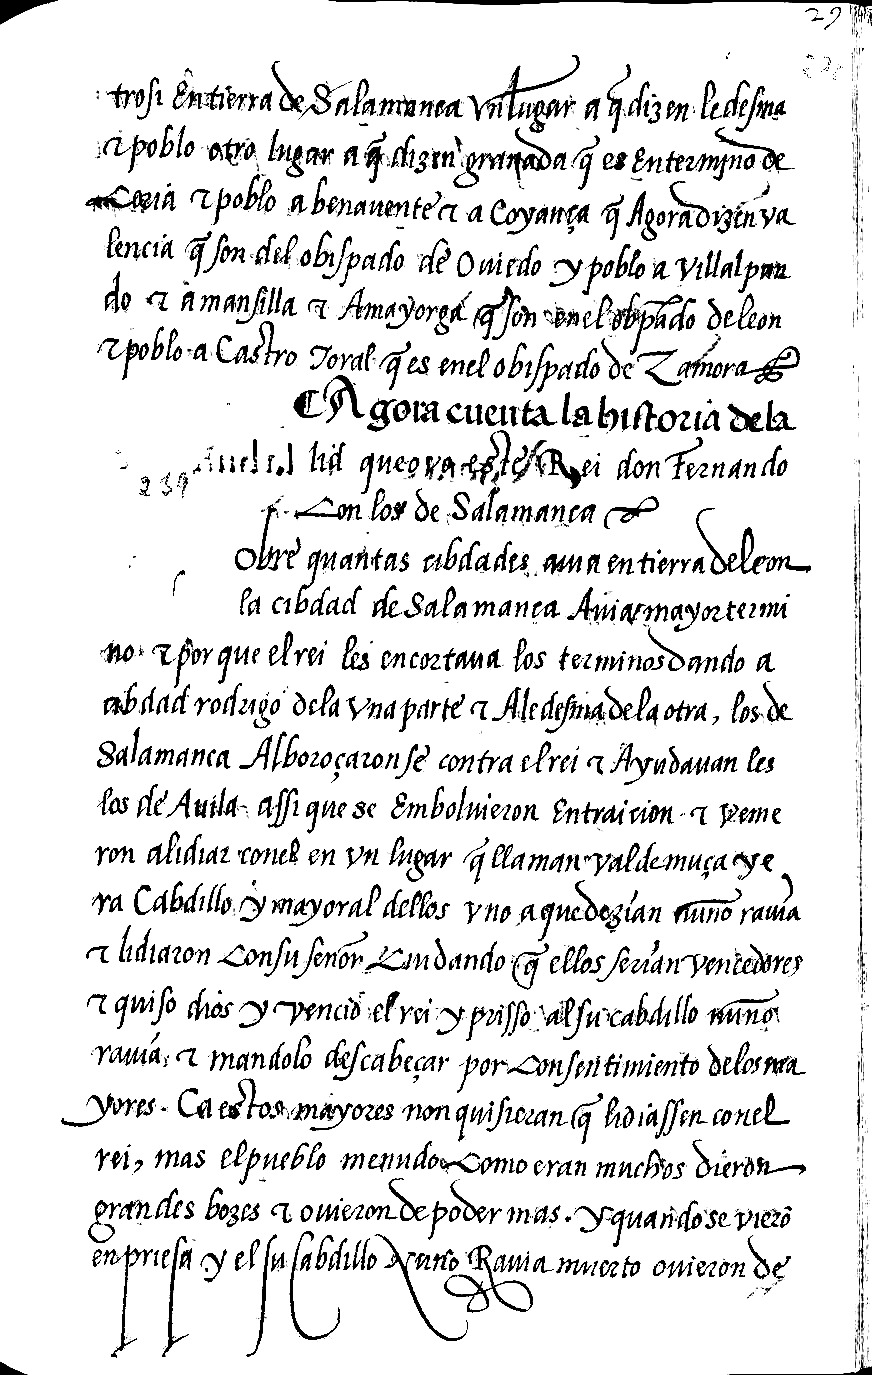 29
trosi En tierra de Salamanca Vn lugar a q̃ dizen ledesma
⁊ poblo otro lugar a q̃ dizen granada q̃ es En termjno de
Coria ⁊ poblo a benauente ⁊ a Coyança q̃ Agora dizen va
lencia q̃ son del obispado de Ouiedo y poblo a Villalpan
do ⁊ a mansilla ⁊ A mayorga q̃ son en el obp̃ado de leon
⁊ poblo a Castro Toral q̃ es en el obispado de Zamora
Agora cuenta la historia de la
lid que ovo este Rei don Fernando
239
Con los de Salamanca
Obre quantas cibdades auia en tierra de leon
la cibdad de Salamanca Auia mayor termi
no ⁊ por que el rei les encortaua los terminos dando a
cibdad rodrigo de la vna parte ⁊ A ledesma de la otra, los de
Salamanca Alboroçaronse contra el rei ⁊ Ayudauan les
los de Auila assi que se Emboluieron En traicion ⁊ veme
ron a lidiar con el en vn lugar q̃ llaman valdemuça y e
ra Cabdillo y mayoral dellos vno a que dezian nuño rauia
⁊ lidiaron Con su señor Cuidando q̃ ellos serian vencedores
⁊ quiso dios y vencio el rei y prisso al su cabdillo nuño
rauia, ⁊ mandolo descabeçar por Consentimiento de los ma
yores. Ca estos mayores non quisieran q̃ lidiassen con el
rei, mas el pueblo menudo Como eran muchos dieron
grandes bozes ⁊ ouieron de poder mas. Y quando se vierõ
en priesa y el su Cabdillo Nuño Rauia muerto ouieron de